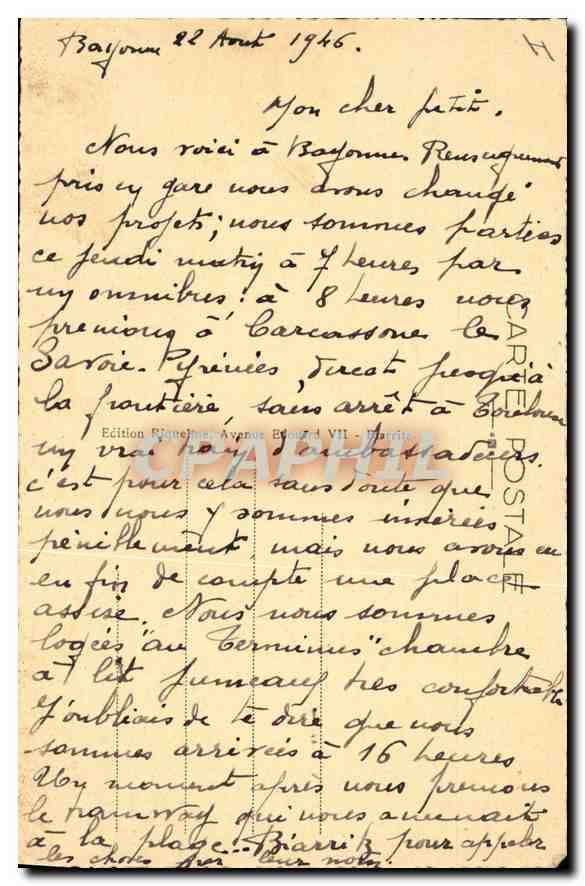 Bayonne 22 Août 1946.
I
Mon cher petit.
Nous voici à Bayonne. Renseignements
pris en gare nous avons changé
nos projets; nous sommes parties
ce jeudi matin à 7 heures par
un omnibus: à 8 heures nous
prenions à Carcassonne le
Savoie-Pyrénées, direct jusqu'à
la frontière, sans arrêt à Toulouse
Edition Riqueline, Avenue Edouard VII - Biarritz
un vrai train d'ambassadeurs.
c'est pour cela sans doute que
nous nous y sommes insérées
péniblement, mais nous avons eu
en fin de compte une place
assise. Nous nous sommes
logées "au Terminus" chambre
à lit jumeaux très confortable
J'oubliais de te dire que nous
sommes arrivées à 16 heures
Un moment après nous prenions
le tramway qui nous amenait
à la plage... Biarritz pour appeler
les choses par leur nom.
CARTE POSTALE
CPAPHIL